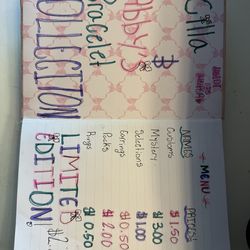 Cilla
&
Abby's
Bracelet
COLLECTION
MENU
NAMES PRICES
Customs $1.50
Mystery $3.00
Selections $1.00
Earings $0.50
Packs $2.00
Rings $0.50
LIMITED
EDITION